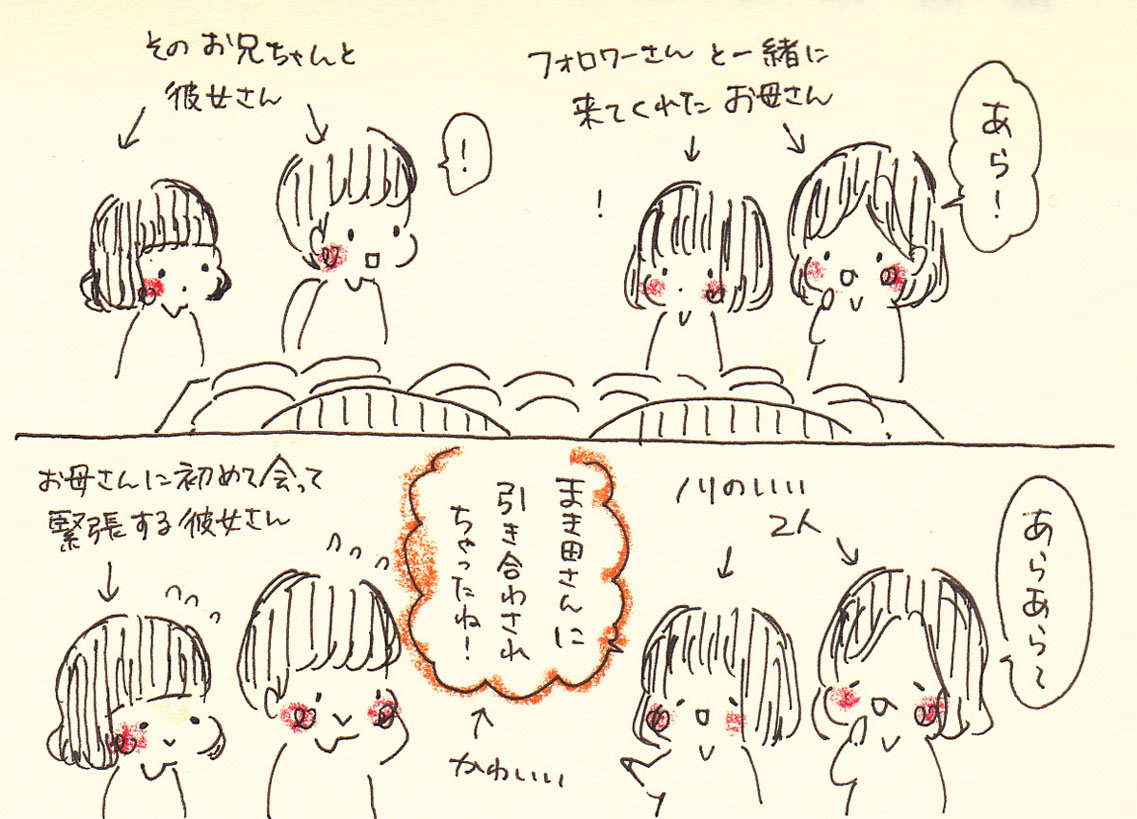 そのお兄ちゃんと
彼女さん
！
フォロワーさんと一緒に
来てくれたお母さん
！
あら！
お母さんに初めて会って
緊張する彼女さん
まき田さんに
引き合わされ
ちゃったね！
かわいい
ノリのいい
2人
あらあら〜